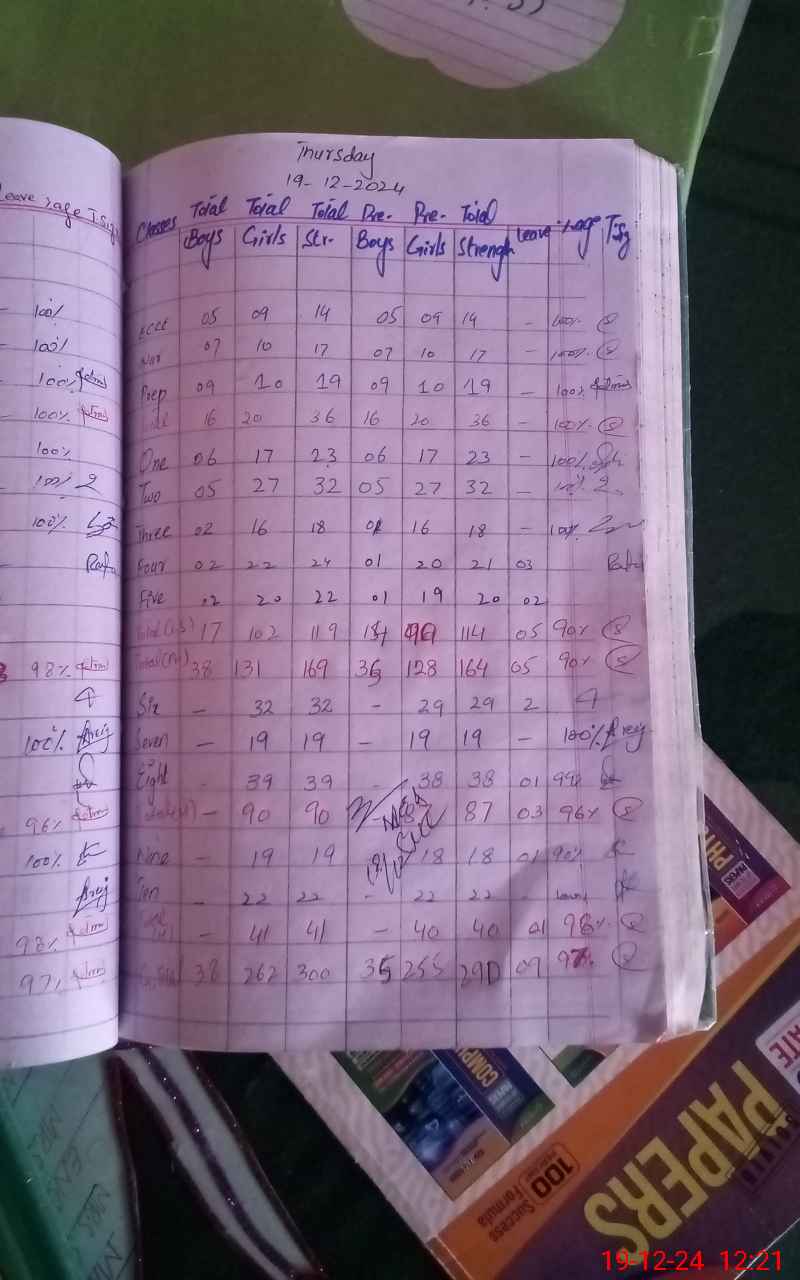 Thursday
19-12-2024
Classes Total Boys Total Girls Total Str. Pre. Boys Pre. Girls Total Strength Leave %age T.Sig
ECCE 05 09 14 05 09 14 - 100%
Nur 07 10 17 07 10 17 - 100%
Prep 09 10 19 09 10 19 - 100%
16 20 36 16 20 36 - 100%
One 06 17 23 06 17 23 - 100%
Two 05 27 32 05 27 32 - 100%
Three 02 16 18 16 18 - 100%
Four 02 22 24 01 20 21 03
Five 02 20 22 01 19 20 02
Total 17 102 119 114 05 90%
Total 38 131 169 36 128 164 05 90%
Six - 32 32 - 29 29 2
Seven - 19 19 - 19 19 - 100%
Eight - 39 39 - 38 38 01
- 90 90 87 03 96%
Nine - 19 19 18 18 01 90%
Ten - 22 22 - 22 22 -
Total - 41 41 - 40 40 01 98%
38 262 300 35 255 290 09 97%
Leave %age T.Sig
100%
100%
100%
100%
100%
100%
100%
98%
100%
96%
100%
98%
97%
COMPU
100 Success Formula
PAPERS
19-12-24 12:21